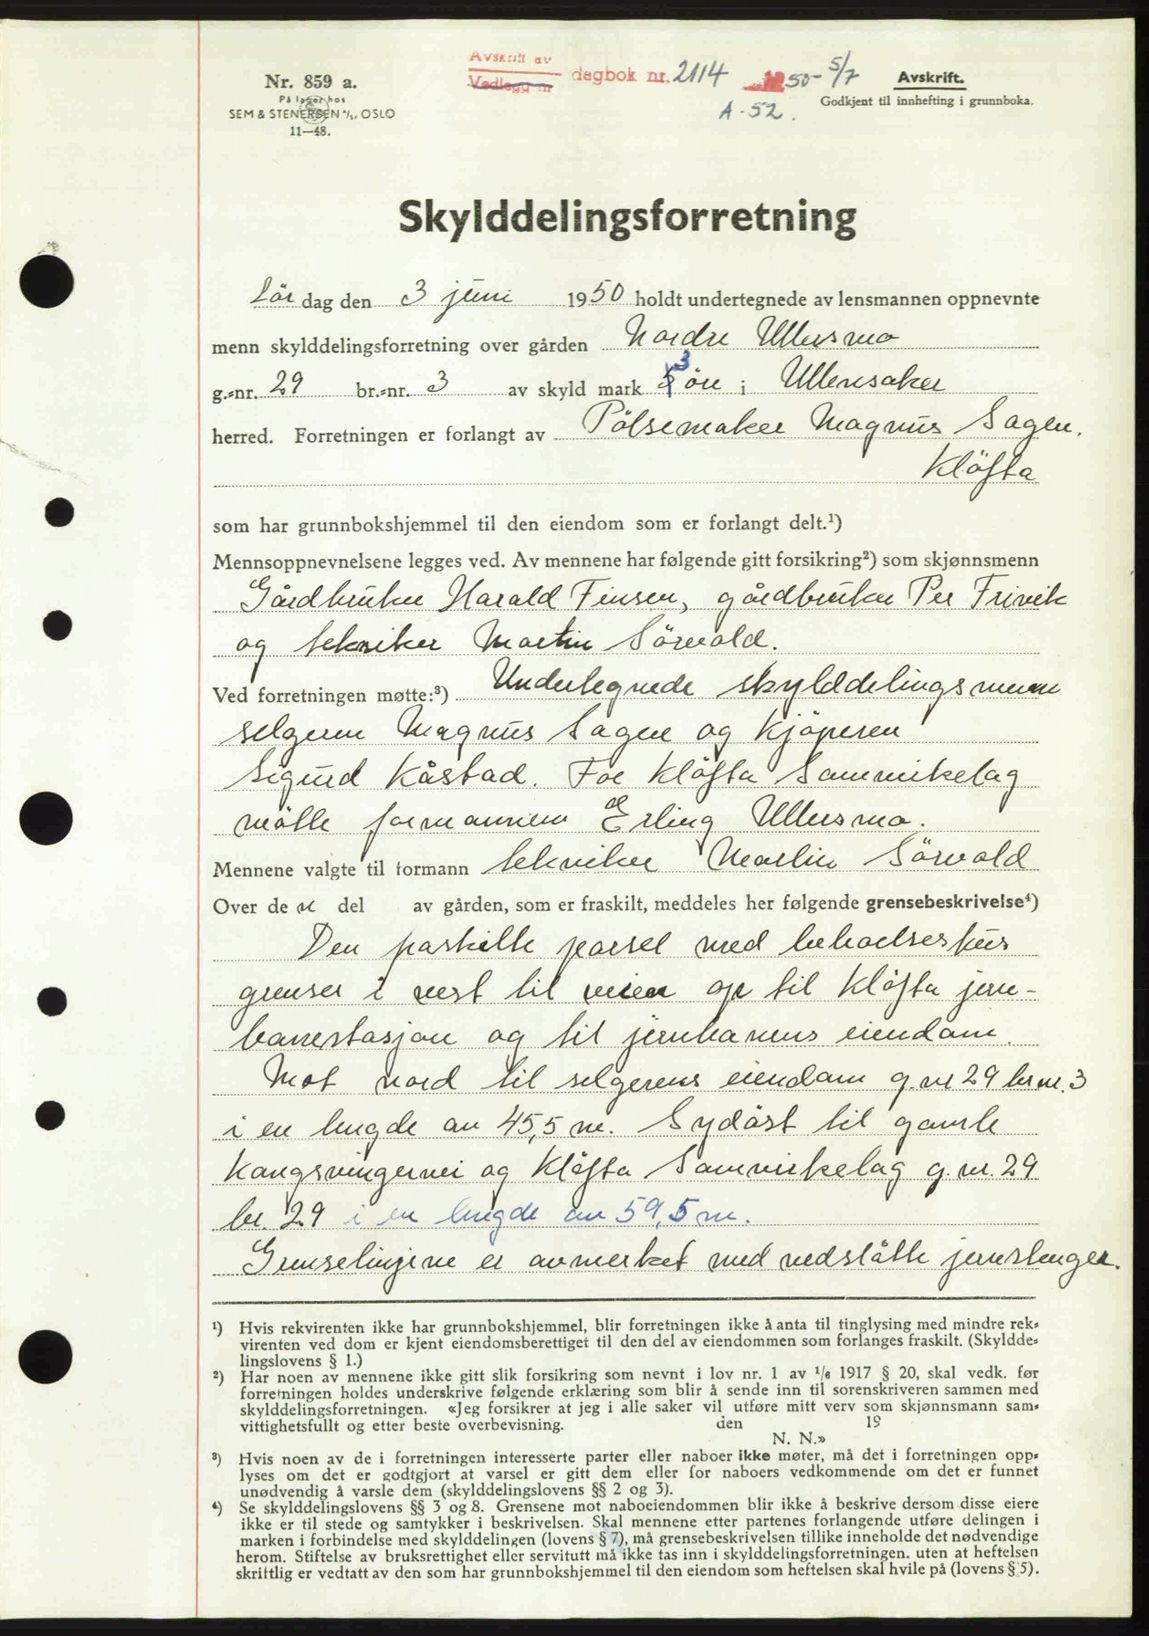 Nr. 859 a.
På lager hos
SEM & STENERSEN A/S, OSLO
11—48.
Avskrift av
Vedlegg nr
dagbok nr. 2114 1950 - 5/7
A - 52.
Avskrift.
Godkjent til innhefting i grunnboka.
Skylddelingsforretning
Lör dag den 3 juni 1950 holdt undertegnede av lensmannen oppnevnte
menn skylddelingsforretning over gården Nordre Ullersmo
g.-nr. 29 br.-nr. 3 av skyld mark 3 öre i Ullensaker
herred. Forretningen er forlangt av Pölsemaker Magnus Sagen,
Klöfta
som har grunnbokshjemmel til den eiendom som er forlangt delt.¹)
Mennsoppnevnelsene legges ved. Av mennene har følgende gitt forsikring²) som skjønnsmenn
Gårdbruker Harald Finsen, gårdbruker Per Frivik
og tekniker Martin Sörvald.
Ved forretningen møtte:³) Undertegnede skylddelingsmenn
selgeren Magnus Sagen og kjöperen
Sigurd Kåstad. For Klöfta Samvirkelag
mötte formannen Erling Ullersmo.
Mennene valgte til formann tekniker Martin Sörvald
Over de n del av gården, som er fraskilt, meddeles her følgende grensebeskrivelse⁴)
Den fraskilte parsel med beboelseshus
grenser i vest til veien op til Klöfta jern-
banestasjon og til jernbanens eiendom.
Mot nord til selgerens eiendom g.nr 29 br.nr. 3
i en lengde av 45,5 m. Sydöst til gamle
Kongsvingervei og Klöfta Samvirkelag g.nr. 29
br. 29 i en lengde av 59,5 m.
Grenselinjene er avmerket med nedslåtte jernstenger.
¹) Hvis rekvirenten ikke har grunnbokshjemmel, blir forretningen ikke å anta til tinglysing med mindre rek-
virenten ved dom er kjent eiendomsberettiget til den del av eiendommen som forlanges fraskilt. (Skyldde-
lingslovens § 1.)
²) Har noen av mennene ikke gitt slik forsikring som nevnt i lov nr. 1 av 1/6 1917 § 20, skal vedk. før
forretningen holdes underskrive følgende erklæring som blir å sende inn til sorenskriveren sammen med
skylddelingsforretningen. «Jeg forsikrer at jeg i alle saker vil utføre mitt verv som skjønnsmann sam-
vittighetsfullt og etter beste overbevisning. den 19
N. N.»
³) Hvis noen av de i forretningen interesserte parter eller naboer ikke møter, må det i forretningen opp-
lyses om det er godtgjort at varsel er gitt dem eller for naboers vedkommende om det er funnet
unødvendig å varsle dem (skylddelingslovens §§ 2 og 3).
⁴) Se skylddelingslovens §§ 3 og 8. Grensene mot naboeiendommen blir ikke å beskrive dersom disse eiere
ikke er til stede og samtykker i beskrivelsen. Skal mennene etter partenes forlangende utføre delingen i
marken i forbindelse med skylddelingen (lovens § 7), må grensebeskrivelsen tillike inneholde det nødvendige
herom. Stiftelse av bruksrettighet eller servitutt må ikke tas inn i skylddelingsforretningen. uten at heftelsen
skriftlig er vedtatt av den som har grunnbokshjemmel til den eiendom som heftelsen skal hvile på (lovens § 5).